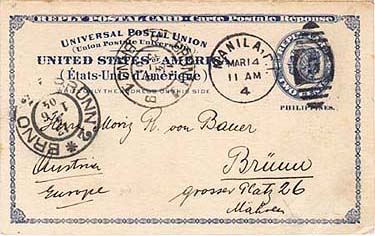 REPLY POSTAL CARD - Carte Postale Reponse
UNIVERSAL POSTAL UNION
(Union Postale Universelle)
UNITED STATES AMERI
(États-Unis d'Amérique)
THE ADDRESS ON THIS SIDE
MANILA, P.I.
MAR 14
11 AM
4
PHILIPPINES.
BRNO
Herrn Moriz R. von Bauer
Brünn
Austria
grosser Platz 26
Europe
Mähren